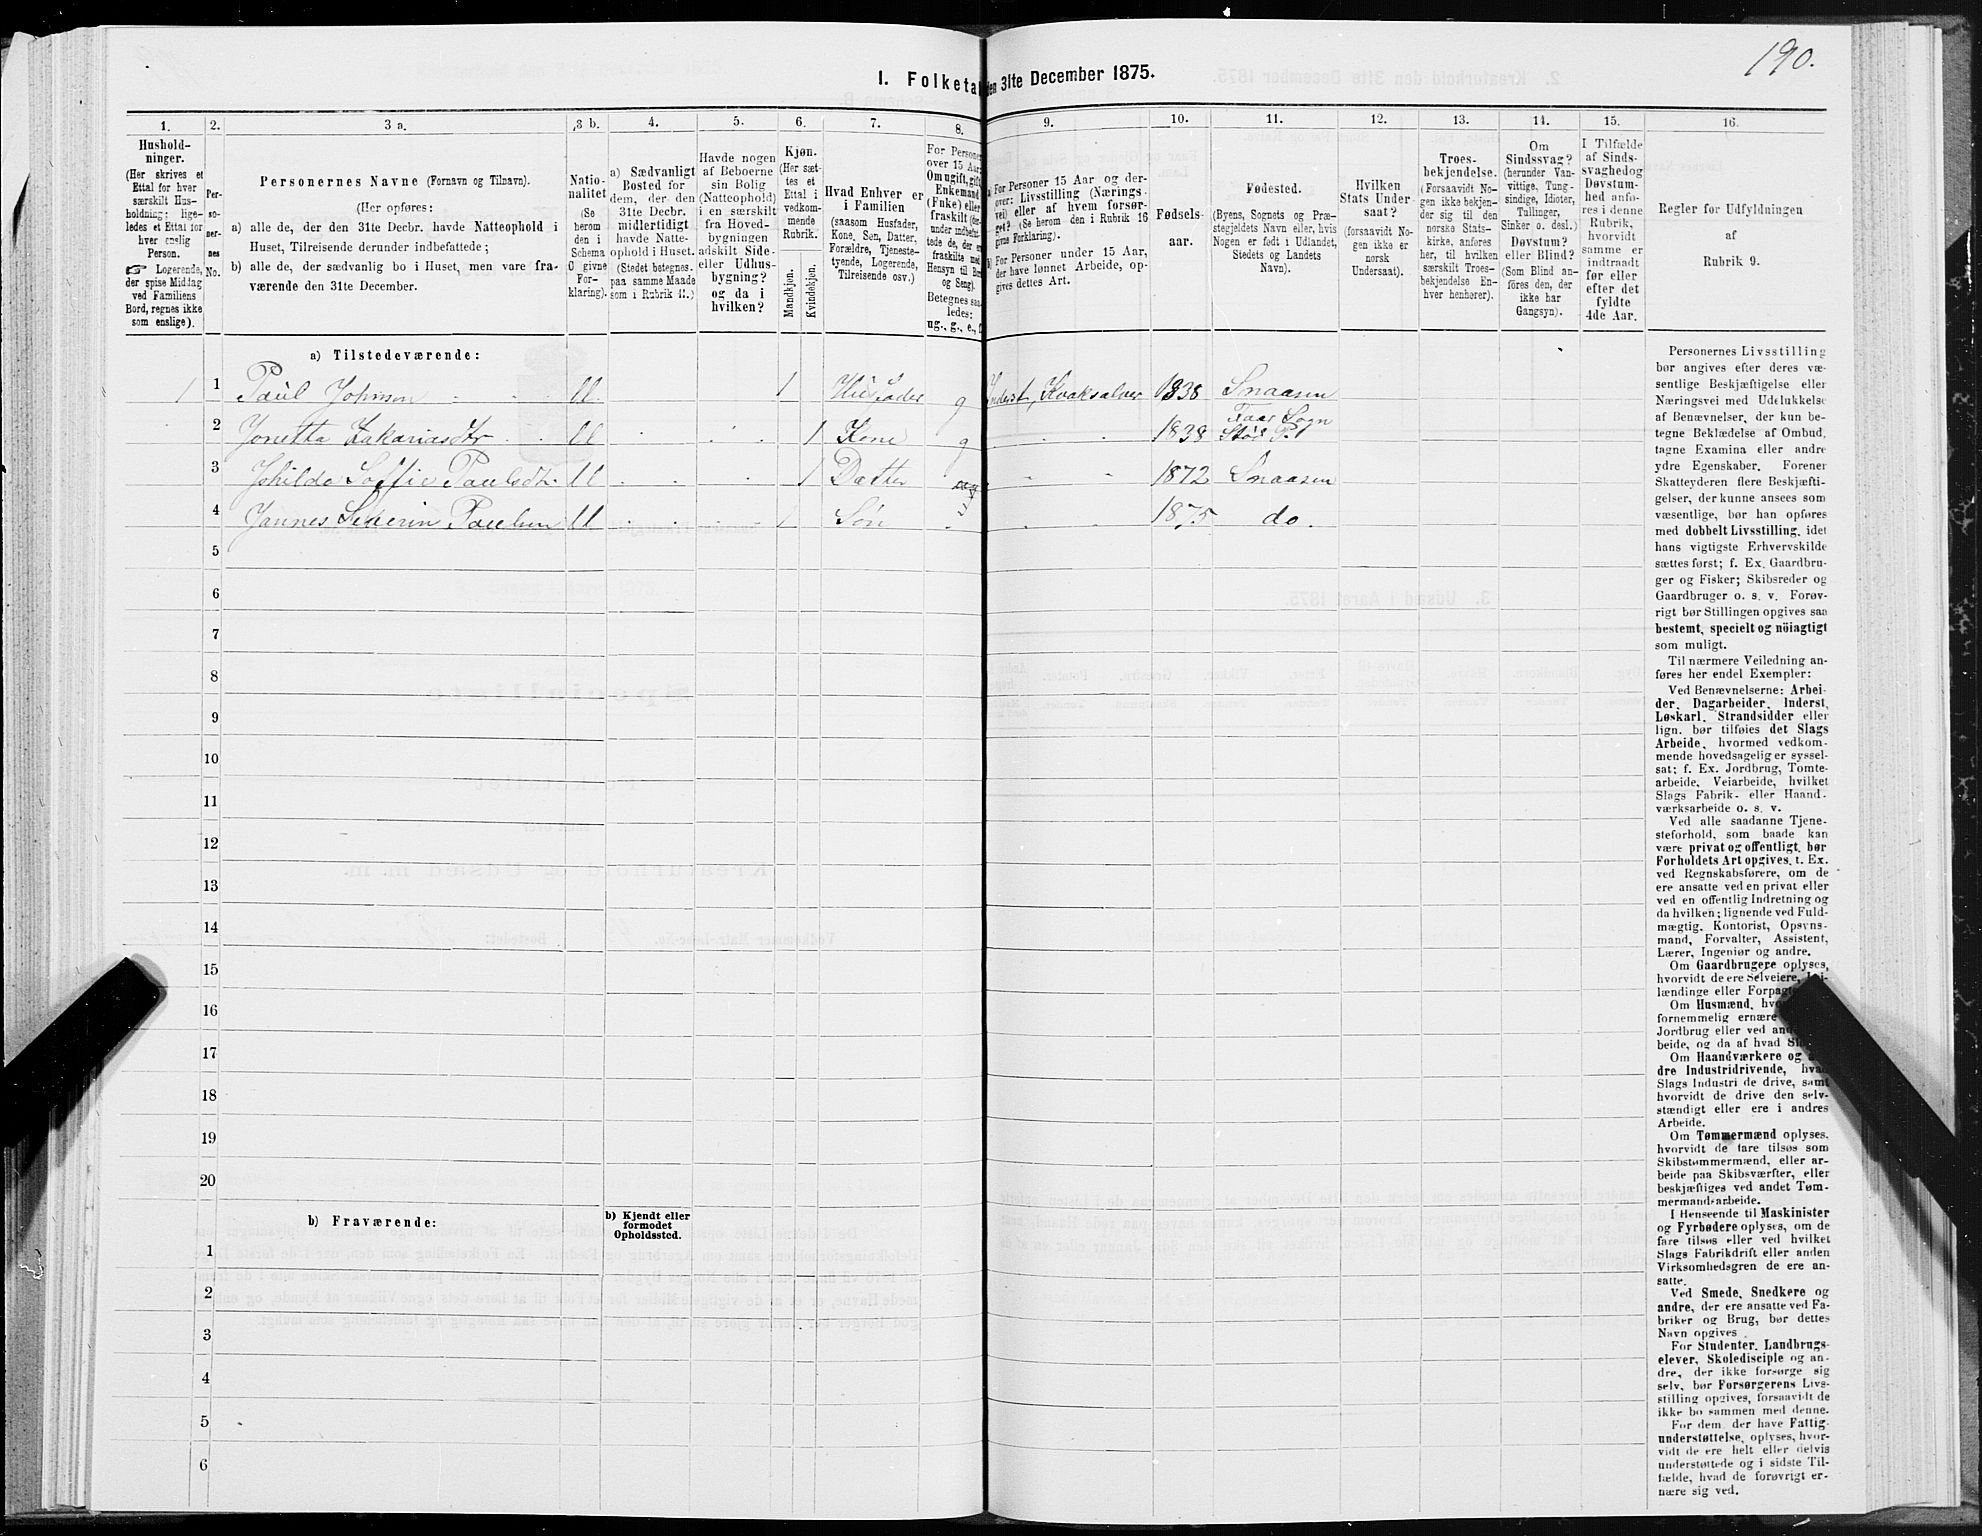 190.
1. Folketal den 31te December 1875.
1. 2. 3 a. 3 b. 4. 5. 6. 7. 8. 9. 10. 11. 12. 13. 14. 15. 16.
Hushold-
ninger.
(Her skrives et
Ettal for hver
særskilt Hus-
holdning; lige-
ledes et Ettal for
hver enslig
Person.
☞ Logerende,
der spise Middag
ved Familiens
Bord, regnes ikke
som enslige).
Per-
so-
ner-
nes
No.
Personernes Navne (Fornavn og Tilnavn).
(Her opføres:
a) alle de, der den 31te Decbr. havde Natteophold i
Huset, Tilreisende derunder indbefattede;
b) alle de, der sædvanlig bo i Huset, men vare fra-
værende den 31te December.
Natio-
nalitet
(Se
herom
den i
Schema
C givne
For-
klaring).
a) Sædvanligt
Bosted for
dem, der den
31te Decbr.
midlertidigt
havde Natte-
ophold i Huset.
(Stedet betegnes
paa samme Maade
som i Rubrik 11.)
Havde nogen
af Beboerne
sin Bolig
(Natteophold)
i en særskilt
fra Hoved-
bygningen
adskilt Side-
eller Udhus-
bygning?
og da i
hvilken?
Kjøn.
(Her sæt-
tes et
Ettal i
vedkom-
mende
Rubrik.
Mandkjøn.
Kvindekjøn.
Hvad Enhver er
i Familien
(saasom Husfader,
Kone, Søn, Datter,
Forældre, Tjeneste-
tyende, Logerende,
Tilreisende osv.)
For Personer
over 15 Aar:
Om ugift, gift,
Enkemand
(Enke) eller
fraskilt
Betegnes saa-
ledes:
ug., g., e., f.
a) For Personer 15 Aar og der-
over: Livsstilling (Nærings-
vei) eller af hvem forsør-
get? (Se herom den i Rubrik 16
givne Forklaring).
b) For Personer under 15 Aar,
der have lønnet Arbeide, op-
gives dettes Art.
Fødsels-
aar.
Fødested.
(Byens, Sognets og Præ-
stegjeldets Navn eller, hvis
Nogen er født i Udlandet,
Stedets og Landets
Navn).
Hvilken
Stats Under-
saat?
(forsaavidt No-
gen ikke er
norsk
Undersaat).
Troes-
bekjendelse.
(Forsaavidt No-
gen ikke bekjen-
der sig til den
norske Stats-
kirke, anføres
her, til hvilken
særskilt Troes-
bekjendelse En-
hver henhører).
Om
Sindssvag?
(herunder Van-
vittige, Tung-
sindige, Idioter,
Tullinger,
Sinker o. desl.)
Døvstum?
eller Blind?
(Som Blind an-
føres den, der
ikke har
Gangsyn).
I Tilfælde
af Sinds-
svaghed og
Døvstum-
hed anfø-
res i denne
Rubrik,
hvorvidt
samme er
indtraadt
før eller
efter det
fyldte
4de Aar.
Regler for Udfyldningen
af
Rubrik 9.
a) Tilstedeværende:
1 1 Paul Johnson U. 1 Husfader g Inderst, Kvaksalver 1838 Snaasen
2 Jonetta Zakariasdtr U 1 Kone g 1838 Foar Sogn Stod P.
3 Sofie Paulsdtr. U 1 Datter 1872 Snaasen
4 Jannes Severin Paulsen U 1 Søn 1875 do.
5
6
7
8
9
10
11
12
13
14
15
16
17
18
19
20
b) Fraværende:
b) Kjendt eller
formodet
Opholdssted.
1
2
3
4
5
6
Personernes Livsstilling
bør angives efter deres væ-
sentlige Beskjæftigelse eller
Næringsvei med Udelukkelse
af Benævnelser, der kun be-
tegne Beklædelse af Ombud,
tagne Examina eller andre
ydre Egenskaber. Forener
Skatteyderen flere Beskjæfti-
gelser, der kunne ansees som
væsentlige, bør han opføres
med dobbelt Livsstilling, idet
hans vigtigste Erhvervskilde
sættes først; f. Ex. Gaardbru-
ger og Fisker; Skibsreder og
Gaardbruger o. s. v. Forøv-
rigt bør Stillingen opgives saa
bestemt, specielt og nöiagtigt
som muligt.
Til nærmere Veiledning an-
føres her endel Exempler:
Ved Benævnelserne: Arbei-
der, Dagarbeider, Inderst,
Løskarl, Strandsidder eller
lign. bør tilføies det Slags
Arbeide, hvormed vedkom-
mende hovedsagelig er syssel-
sat; f. Ex. Jordbrug, Tomte-
arbeide, Veiarbeide, hvilket
Slags Fabrik- eller Haand-
værksarbeide o. s. v.
Ved alle saadanne Tjene-
steforhold, som baade kan
være privat og offentligt, bør
Forholdets Art opgives, t. Ex.
ved Regnskabsførere, om de
ere ansatte ved en privat eller
ved en offentlig Indretning og
da hvilken; lignende ved Fuld-
mægtig, Kontorist, Opsyns-
mand, Forvalter, Assistent,
Lærer, Ingeniør og andre.
Om Gaardbrugere oplyses,
hvorvidt de ere Selveiere, Lei-
lændinge eller
Om Husmænd,
fornemmelig ernære
Jordbrug eller ved
beide, og da af hvad
Om Haandværkere og an-
dre Industridrivende, hvad
Slags Industri de drive, samt
hvorvidt de drive den selv-
stændigt eller ere i andres
Arbeide.
Om Tømmermænd oplyses,
hvorvidt de fare tilsøs som
Skibstømmermænd, eller ar-
beide paa Skibsværfter, eller
beskjæftiges ved andet Tøm-
mermandsarbeide.
I Henseende til Maskinister
og Fyrbødere oplyses, om de
fare tilsøs eller ved hvilket
Slags Fabrikdrift eller anden
Virksomhedsgren de ere an-
satte.
Ved Smede, Snedkere og
andre, der ere ansatte ved Fa-
briker og Brug, bør dettes
Navn opgives.
For Studenter, Landbrugs-
elever, Skoledisciple og an-
dre, der ikke forsørge sig
selv, bør Forsørgerens Livs-
stilling opgives, forsaavidt de
ikke bo sammen med denne.
For dem, der have Fattig-
understøttelse, oplyses, hvor-
vidt de ere helt eller delvis
understøttede og i sidste Til-
fælde, hvad de forøvrigt er-
nære sig ved.